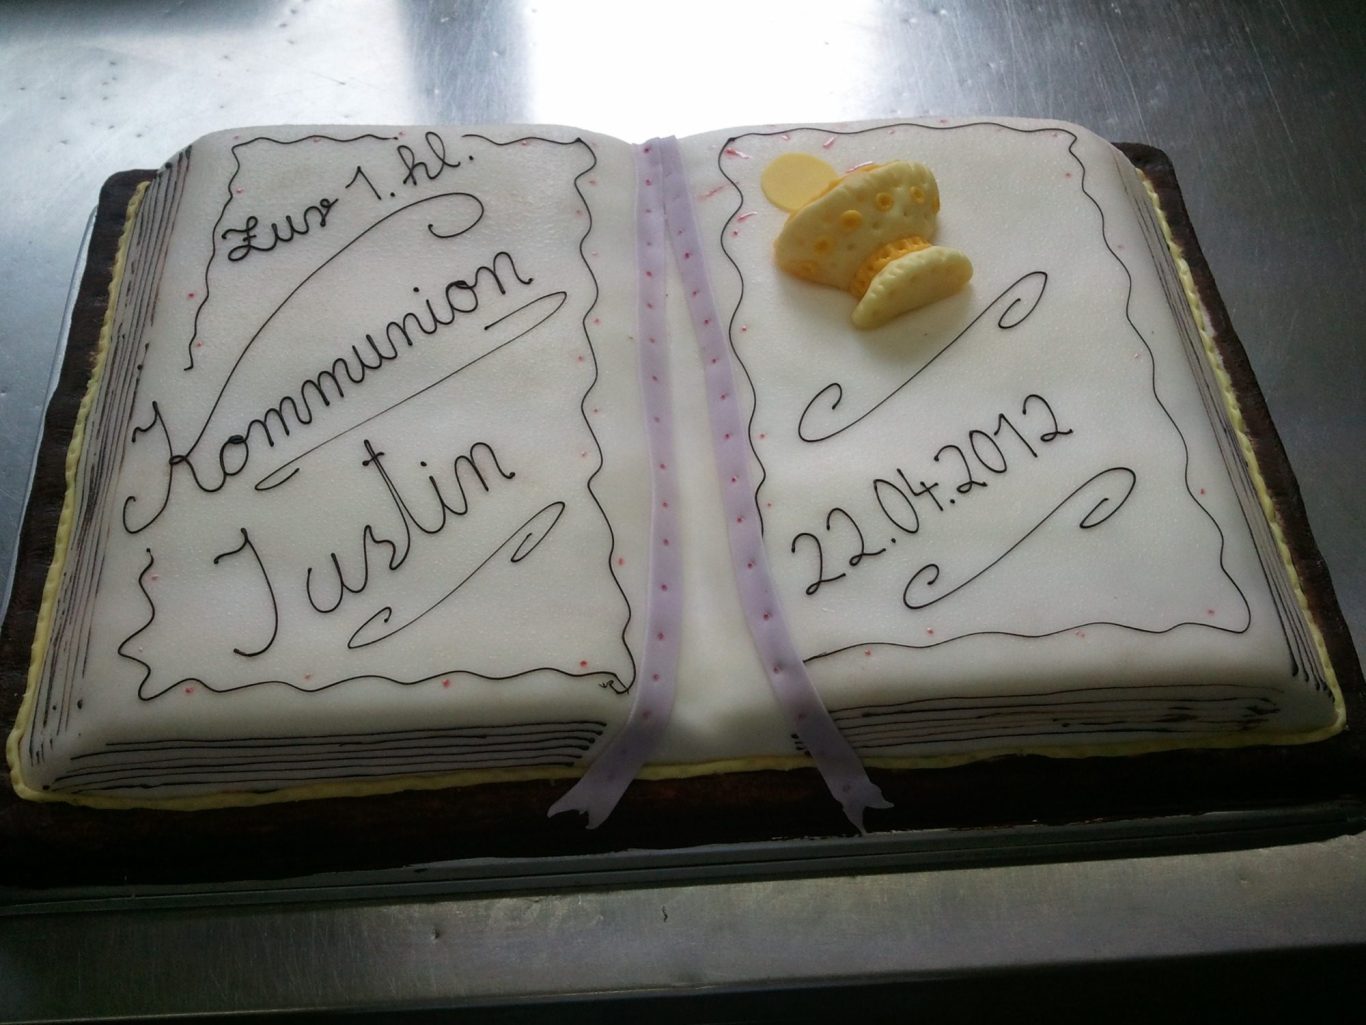 Zur 1. hl.
Kommunion
Justin
22.04.2012